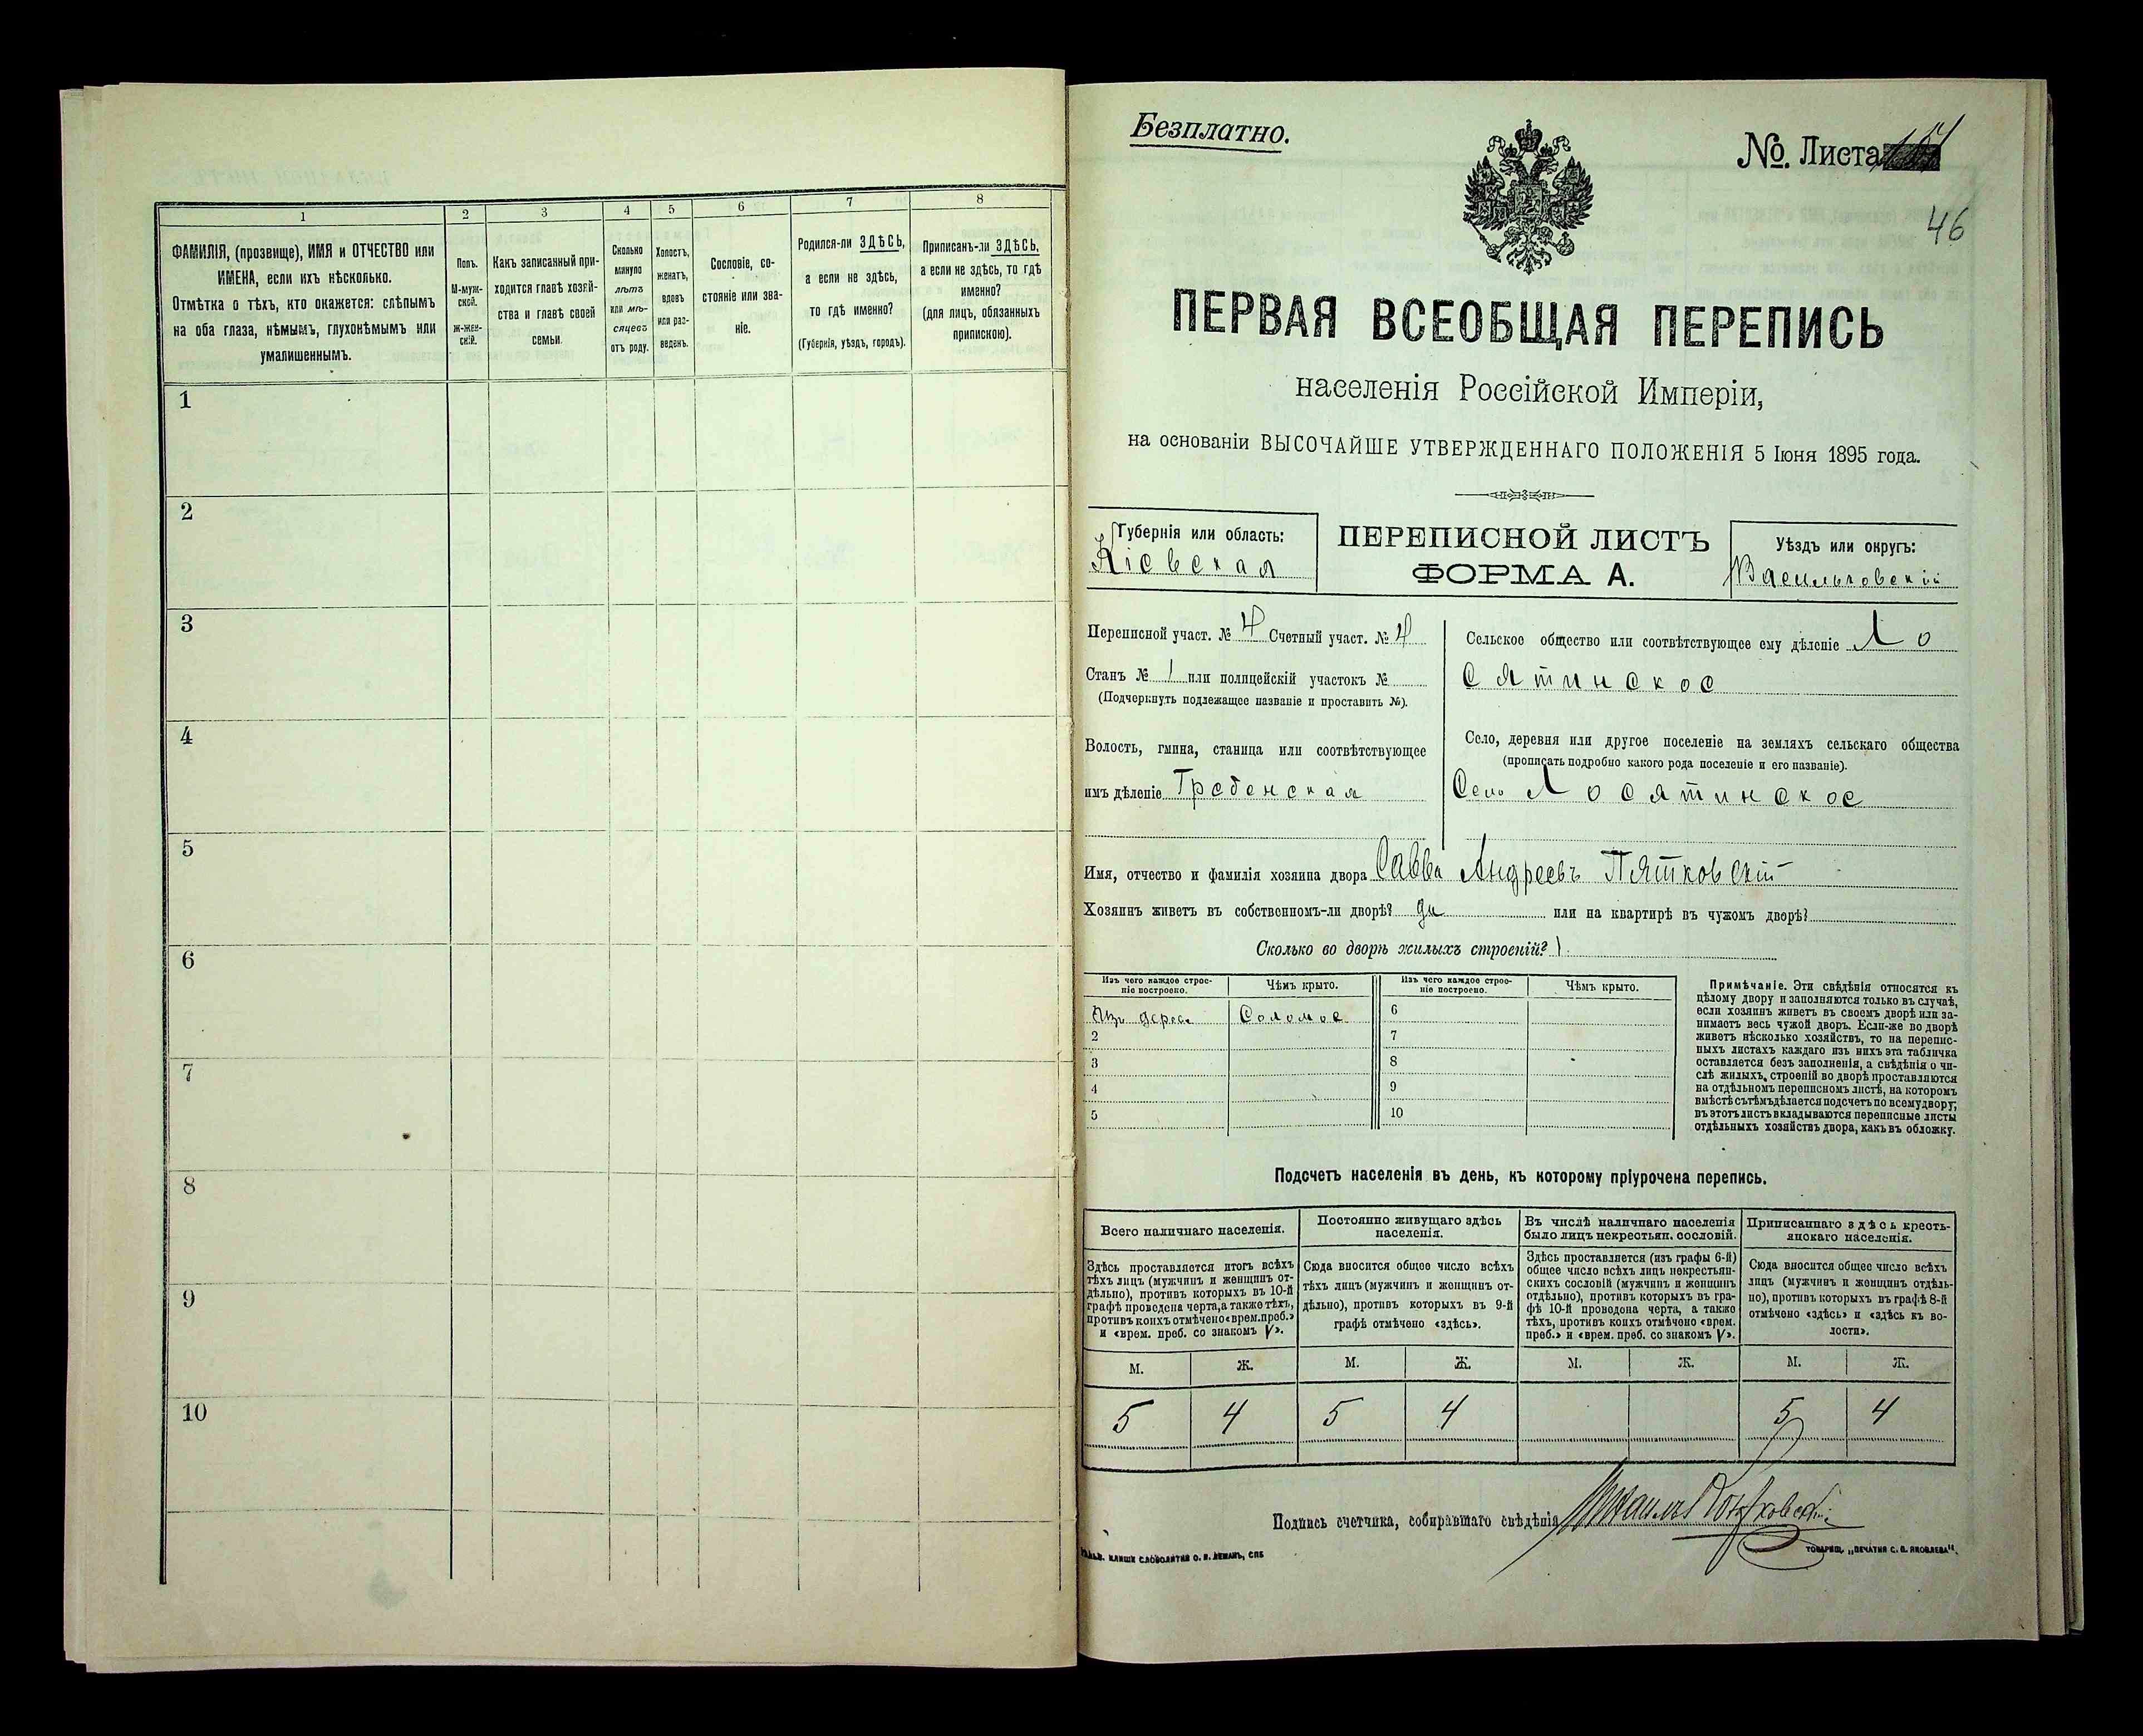 1
2
3
4
5
6
7
8
ФАМИЛІЯ, (прозвище), ИМЯ и ОТЧЕСТВО или
ИМЕНА, если ихъ нѣсколько.
Отмѣтка о тѣхъ, кто окажется: слѣпымъ
на оба глаза, нѣмымъ, глухонѣмымъ или
умалишеннымъ.
Полъ.
М-муж-
ской.
ж-жен-
скій.
Какъ записанный при-
ходится главѣ хозяй-
ства и главѣ своей
семьи.
Сколько
минуло
лѣтъ
или мѣ-
сяцевъ
отъ роду.
Холостъ,
женатъ,
вдовъ
или раз-
веденъ.
Сословіе, со-
стояніе или зва-
ніе.
Родился-ли ЗДѢСЬ,
а если не здѣсь,
то гдѣ именно?
(Губернія, уѣздъ, городъ).
Приписанъ-ли ЗДѢСЬ,
а если не здѣсь, то гдѣ
именно?
(для лицъ, обязанныхъ
припискою).
1
2
3
4
5
6
7
8
9
10
Безплатно.
№. Листа
46
ПЕРВАЯ ВСЕОБЩАЯ ПЕРЕПИСЬ
населенія Россійской Имперіи,
на основаніи ВЫСОЧАЙШЕ УТВЕРЖДЕННАГО ПОЛОЖЕНІЯ 5 Іюня 1895 года.
Губернія или область:
Кіевская
ПЕРЕПИСНОЙ ЛИСТЪ
ФОРМА А.
Уѣздъ или округъ:
Васильковскій
Переписной участ. № 4 Счетный участ. № 4
Станъ № 1 или полицейскій участокъ №
(Подчеркнуть подлежащее названіе и проставить №).
Волость, гмина, станица или соотвѣтствующее
имъ дѣленіе Гребенская
Сельское общество или соотвѣтствующее ему дѣленіе Ло
сятинское
Село, деревня или другое поселеніе на земляхъ сельскаго общества
(прописать подробно какого рода поселеніе и его названіе).
Село Лосятинское
Имя, отчество и фамилія хозяина двора Савва Андреевъ Пятковскій
Хозяинъ живетъ въ собственномъ-ли дворѣ? да или на квартирѣ въ чужомъ дворѣ?
Сколько во дворѣ жилыхъ строеній? 1.
Изъ чего каждое строе-
ніе построено.
Чѣмъ крыто.
Изъ чего каждое строе-
ніе построено.
Чѣмъ крыто.
Изъ дерева Соломое 6
2 7
3 8
4 9
5 10
Примѣчаніе. Эти свѣдѣнія относятся къ
цѣлому двору и заполняются только въ случаѣ,
если хозяинъ живетъ въ своемъ дворѣ или за-
нимаетъ весь чужой дворъ. Если-же во дворѣ
живетъ нѣсколько хозяйствъ, то на перепис-
ныхъ листахъ каждаго изъ нихъ эта табличка
оставляется безъ заполненія, а свѣдѣнія о чи-
слѣ жилыхъ строеній во дворѣ проставляются
на отдѣльномъ переписномъ листѣ, на которомъ
вмѣстѣ съ тѣмъ дѣлается подсчетъ по всему двору;
въ этотъ листъ вкладываются переписные листы
отдѣльныхъ хозяйствъ двора, какъ въ обложку.
Подсчетъ населенія въ день, къ которому пріурочена перепись.
Всего наличнаго населенія.
Постоянно живущаго здѣсь
населенія.
Въ числѣ наличнаго населенія
было лицъ некрестьян. сословій.
Приписаннаго здѣсь кресть-
янскаго населенія.
Здѣсь проставляется итогъ всѣхъ
тѣхъ лицъ (мужчинъ и женщинъ от-
дѣльно), противъ которыхъ въ 10-й
графѣ проведена черта, а также тѣхъ,
противъ коихъ отмѣчено «врем. преб.»
и «врем. преб. со знакомъ V».
Сюда вносится общее число всѣхъ
тѣхъ лицъ (мужчинъ и женщинъ от-
дѣльно), противъ которыхъ въ 9-й
графѣ отмѣчено «здѣсь».
Здѣсь проставляется (изъ графы 6-й)
общее число всѣхъ лицъ некрестьян-
скихъ сословій (мужчинъ и женщинъ
отдѣльно), противъ которыхъ въ гра-
фѣ 10-й проведена черта, а также
тѣхъ, противъ коихъ отмѣчено «врем.
преб.» и «врем. преб. со знакомъ V».
Сюда вносится общее число всѣхъ
лицъ (мужчинъ и женщинъ отдѣль-
но), противъ которыхъ въ графѣ 8-й
отмѣчено «здѣсь» и «здѣсь къ во-
лости».
М. Ж. М. Ж. М. Ж. М. Ж.
5 4 5 4 5 4
Подпись счетчика, собиравшаго свѣдѣнія Михаилъ
СЛОВОЛИТНИ О. И. ЛЕМАНЪ, СПБ
ТОВАРИЩ. „ПЕЧАТНЯ С. П. ЯКОВЛЕВА".